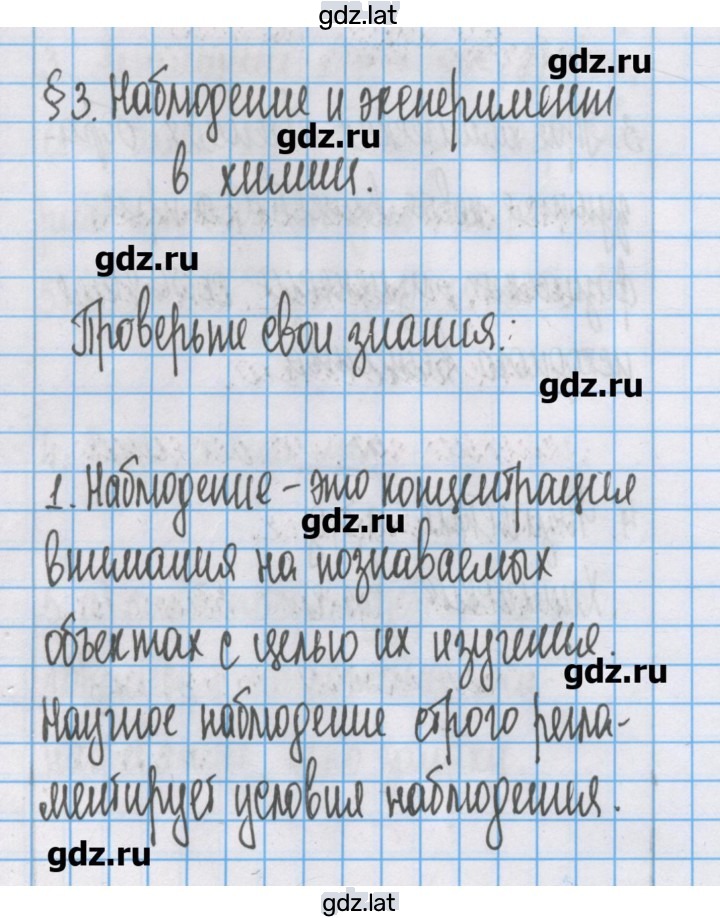 gdz.lat
gdz.ru
§ 3. Наблюдение и эксперимент
gdz.ru
в химии.
gdz.ru
Проверьте свои знания:
gdz.ru
1. Наблюдение – это концентрация
gdz.ru
внимания на познаваемых
объектах с целью их изучения.
gdz.ru
Научное наблюдение строго регла-
ментирует условия наблюдения.
gdz.ru
gdz.lat